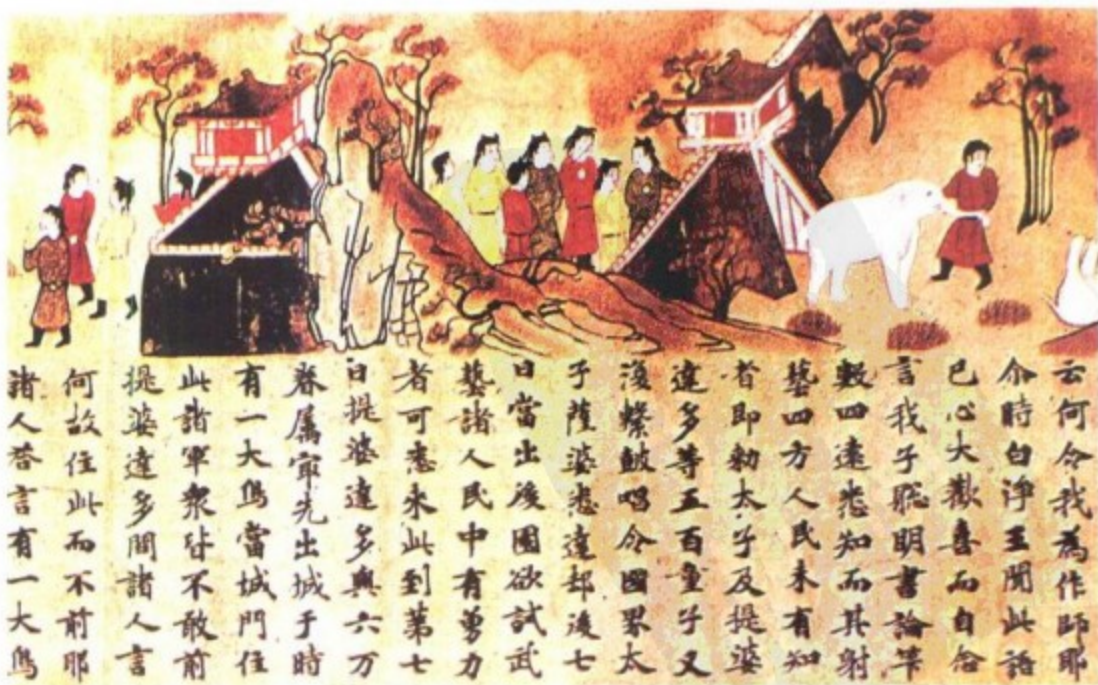 云何令我為作師耶
尒時白淨王聞此語
已心大歡喜而自念
言我子聡明書論筭
數四遠悉知而其射
藝四方人民未有知
者即勑太子及提婆
達多等五百童子又
復擊鼓唱令國界太
子薩婆悉達却後七
日當出後園欲試武
藝諸人民中有勇力
者可悉来此到第七
日提婆達多與六万
眷属冣先出城于時
有一大象當城門住
此諸軍衆皆不敢前
提婆達多問諸人言
何故住此而不前耶
諸人荅言有一大象